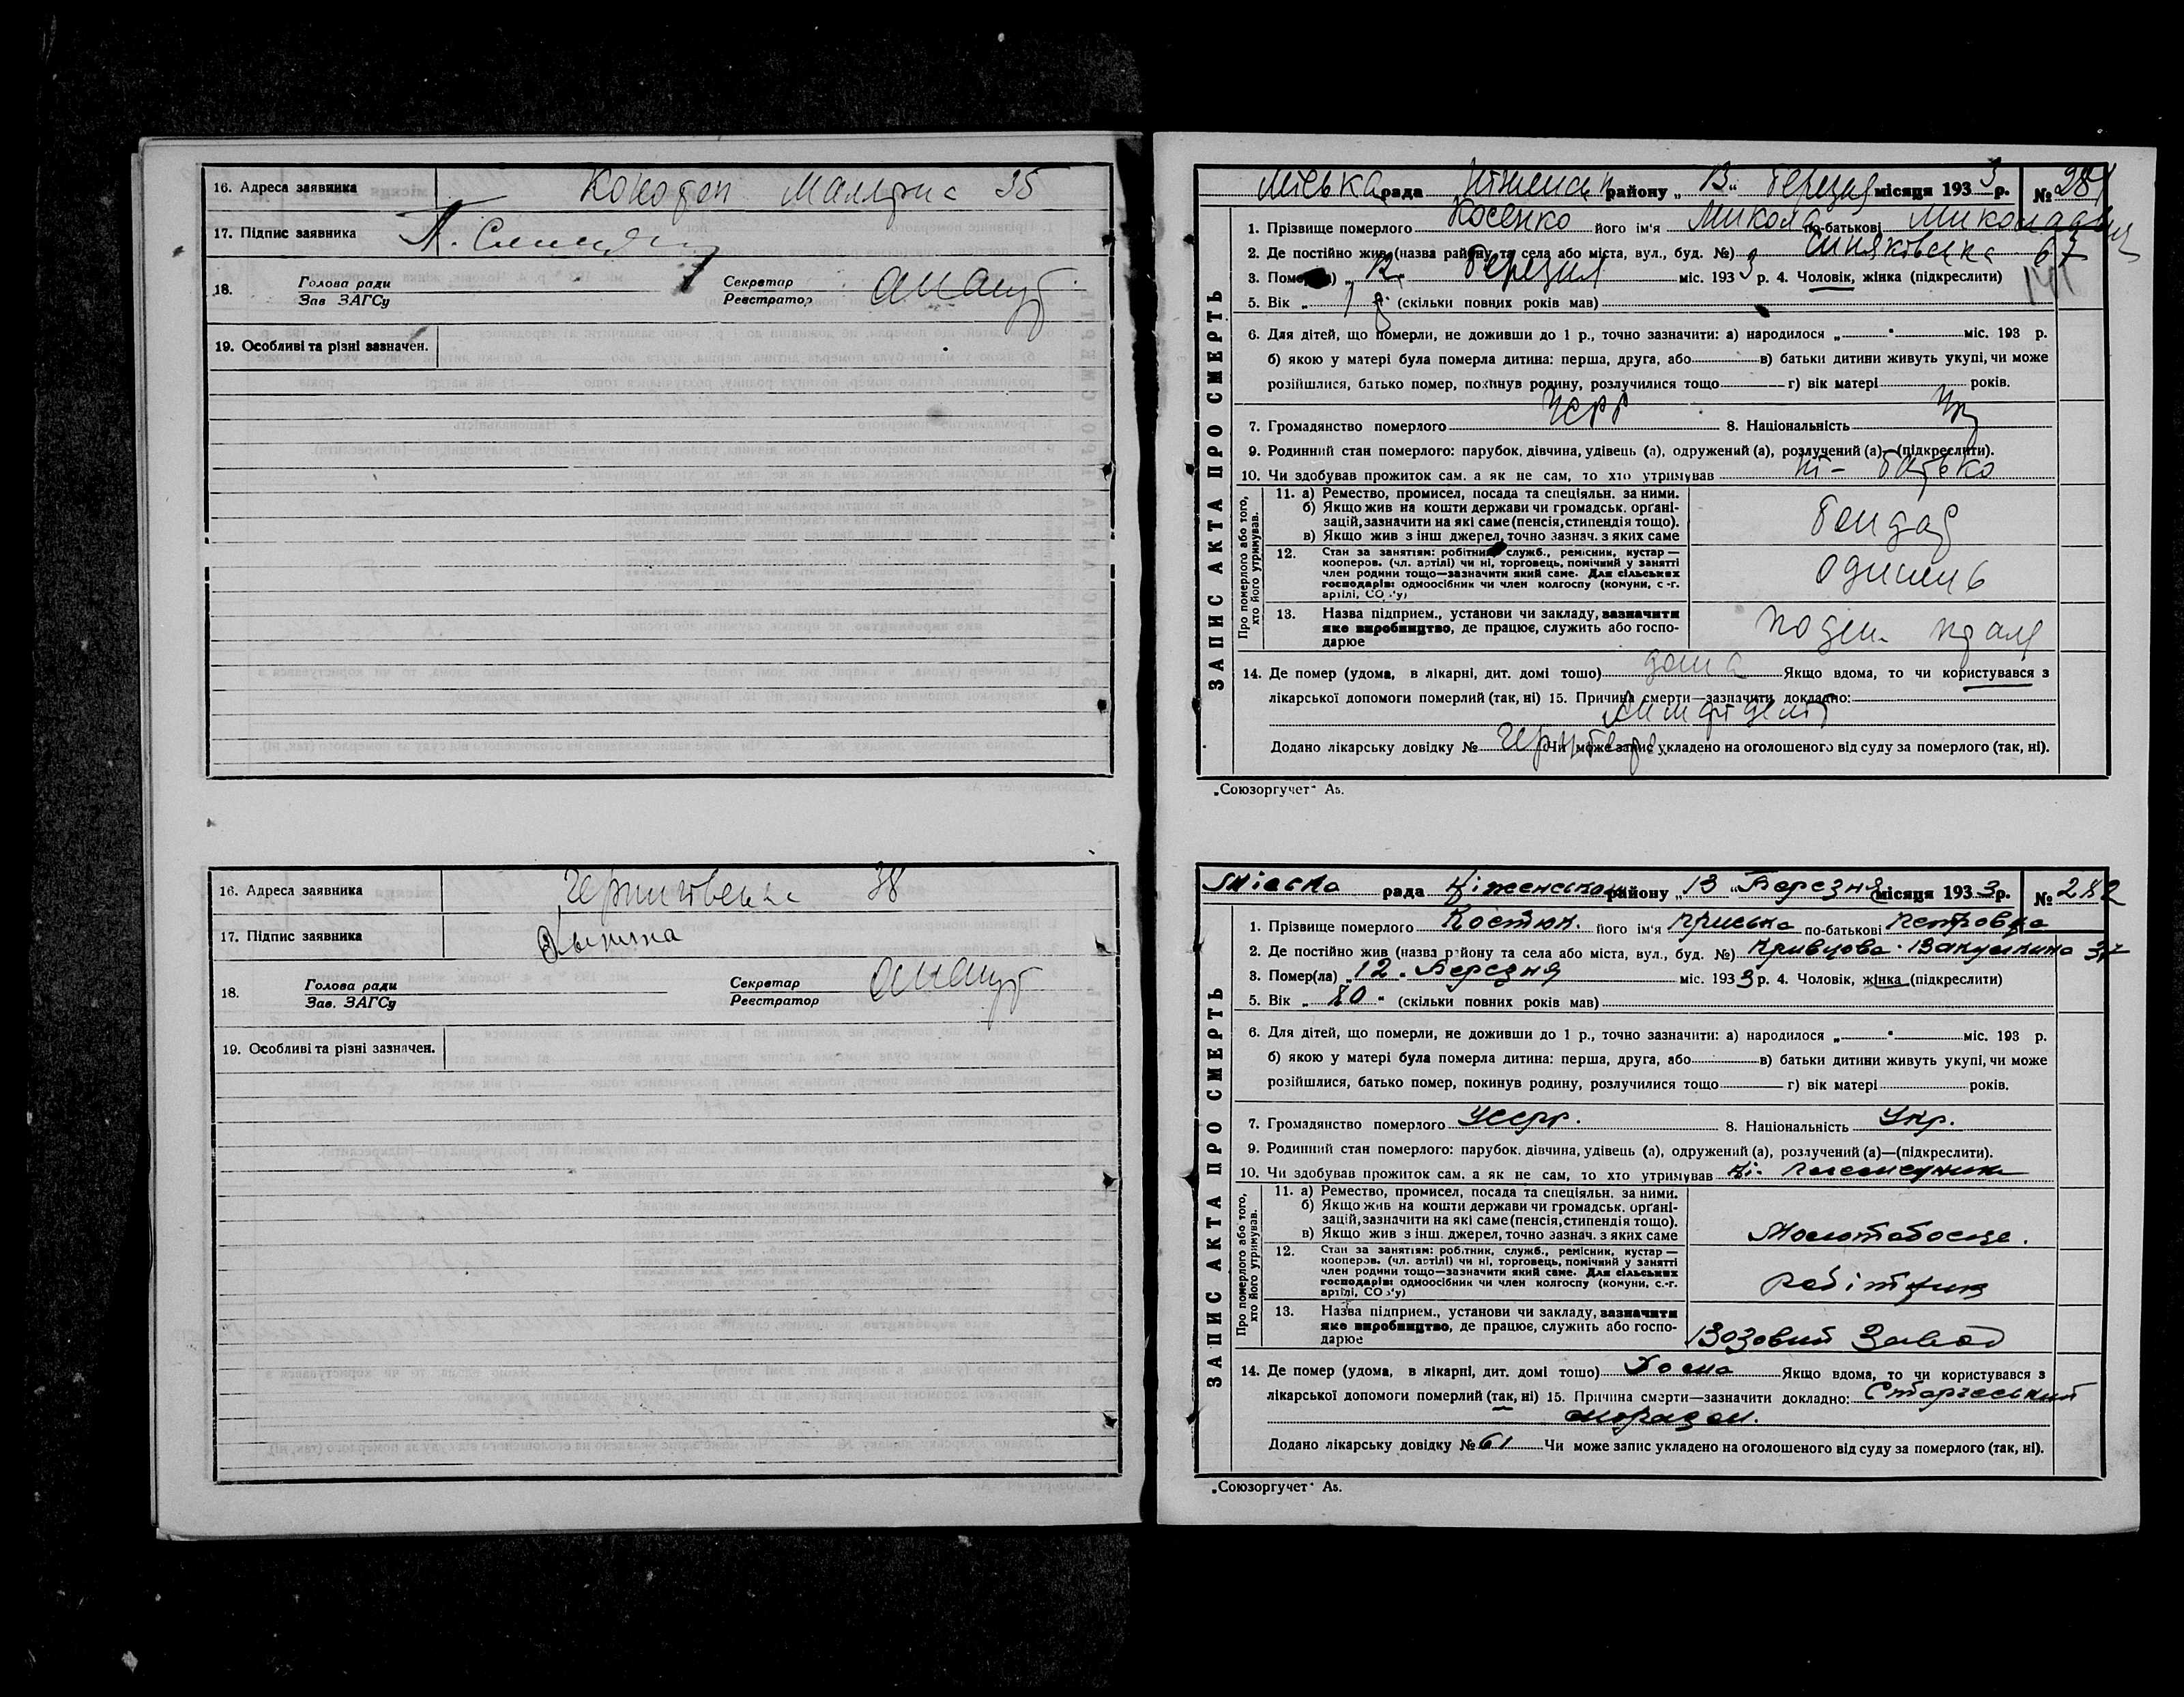 16. Адреса заявника
17. Підпис заявника
18. Голова ради Секретар
Зав ЗАГСу Реєстратор
19. Особливі та різні зазначен.
16. Адреса заявника 38
17. Підпис заявника
18. Голова ради Секретар
Зав. ЗАГСу Реєстратор
19. Особливі та різні зазначен.
ЗАПИС АКТА ПРО СМЕРТЬ
Міська рада району „13“ березня місяця 1933 р. № 281
1. Прізвище померлого Косенко його ім'я Микола по-батькові
2. Де постійно жив (назва району та села або міста, вул., буд. №) Синяковська 67
3. Помер(ла) „12 березня міс. 1933 р. 4. Чоловік, жінка (підкреслити)
5. Вік „ 1 (скільки повних років мав)
6. Для дітей, що померли, не доживши до 1 р., точно зазначити: а) народилося „ “ міс. 193 р.
б) якою у матері була померла дитина: перша, друга, або в) батьки дитини живуть укупі, чи може
розійшлися, батько помер, покинув родину, розлучилися тощо г) вік матері років.
7. Громадянство померлого УСРР 8. Національність Укр
9. Родинний стан померлого: парубок, дівчина, удівець (а), одружений (а), розлучений (а)—(підкреслити).
10. Чи здобував прожиток сам, а як не сам, то хто утримував ні – батько
Про померлого або того, хто його утримував.
11. а) Ремество, промисел, посада та спеціяльн. за ними.
б) Якщо жив на кошти держави чи громадськ. орґані-
зацій, зазначити на які саме (пенсія, стипендія тощо).
в) Якщо жив з інш джерел, точно зазнач. з яких саме
бондар
12. Стан за заняттям: робітник, служб., ремісник, кустар —
кооперов. (чл. артілі) чи ні, торговець, помічний у занятті
член родини тощо—зазначити який саме. Для сільських
господарів: одноосібник чи член колгоспу (комуни, с.-г.
артілі, СОЗ'у)
13. Назва підприєм., установи чи закладу, зазначити
яке виробництво, де працює, служить або госпо-
дарює
14. Де помер (удома, в лікарні, дит. домі тощо) дома Якщо вдома, то чи користувався з
лікарської допомоги померлий (так, ні) 15. Причина смерти—зазначити докладно:
Додано лікарську довідку № Чи може запис укладено на оголошеного від суду за померлого (так, ні).
„Союзоргучет“ А5.
ЗАПИС АКТА ПРО СМЕРТЬ
Міська рада Ніженськом району „13 „Березня місяця 1933 р. № 282
1. Прізвище померлого Костюк. його ім'я Приська по-батькові Петровна
2. Де постійно жив (назва району та села або міста, вул., буд. №) Кривцова 37
3. Помер(ла) „12. Березня міс. 1933 р. 4. Чоловік, жінка (підкреслити)
5. Вік „ 80 “ (скільки повних років мав)
6. Для дітей, що померли, не доживши до 1 р., точно зазначити: а) народилося „ “ міс. 193 р.
б) якою у матері була померла дитина: перша, друга, або в) батьки дитини живуть укупі, чи може
розійшлися, батько помер, покинув родину, розлучилися тощо г) вік матері років.
7. Громадянство померлого Усрр. 8. Національність Укр.
9. Родинний стан померлого: парубок, дівчина, удівець (а), одружений (а), розлучений (а)—(підкреслити).
10. Чи здобував прожиток сам, а як не сам, то хто утримував ні.
Про померлого або того, хто його утримував.
11. а) Ремество, промисел, посада та спеціяльн. за ними.
б) Якщо жив на кошти держави чи громадськ. орґані-
зацій, зазначити на які саме (пенсія, стипендія тощо).
в) Якщо жив з інш. джерел, точно зазнач. з яких саме
12. Стан за заняттям: робітник, служб., ремісник, кустар —
кооперов. (чл. артілі) чи ні, торговець, помічний у занятті
член родини тощо—зазначити який саме. Для сільських
господарів: одноосібник чи член колгоспу (комуни, с.-г.
артілі, СОЗ'у)
робітник
13. Назва підприєм., установи чи закладу, зазначити
яке виробництво, де працює, служить або госпо-
дарює
Возовий Завод
14. Де помер (удома, в лікарні, дит. домі тощо) Дома Якщо вдома, то чи користувався з
лікарської допомоги померлий (так, ні) 15. Причина смерти—зазначити докладно: Старчеський
маразм.
Додано лікарську довідку № 61 Чи може запис укладено на оголошеного від суду за померлого (так, ні).
„Союзоргучет“ А5.